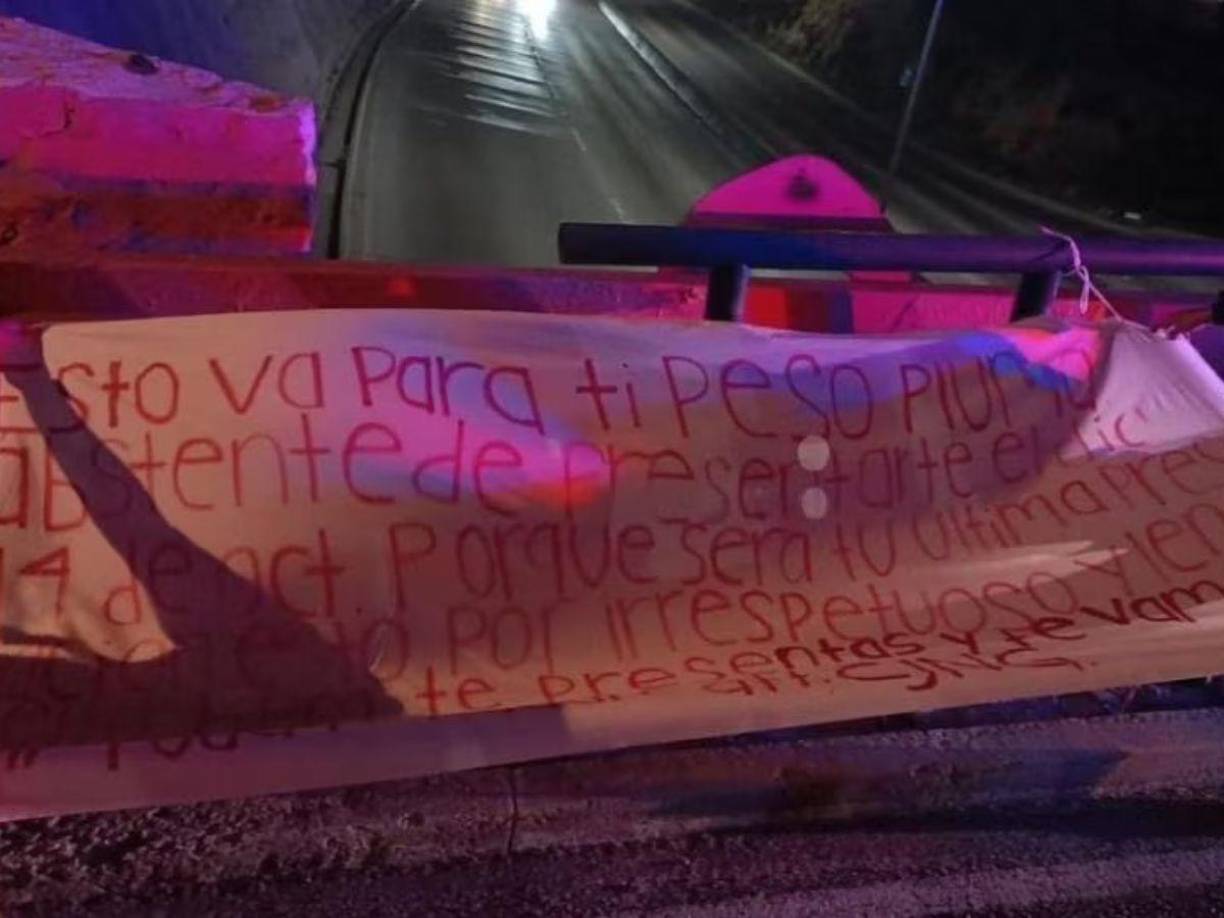 Esto va Para ti Peso Pluma
abstente de presentarte el dic
14 de oct. Porque sera tu ultima Pres
Por irrespetuoso y len
te presentas y te vam
att: CJNG.